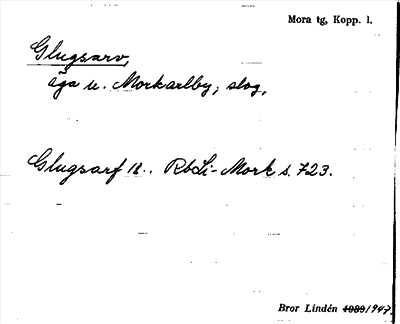 Mora tg, Kopp. l.
Glugsarv,
äga u. Morkarlby, slog,
Glugsarf 18.. RbLi-Mork s. 723.
Bror Lindén 1939/1947.